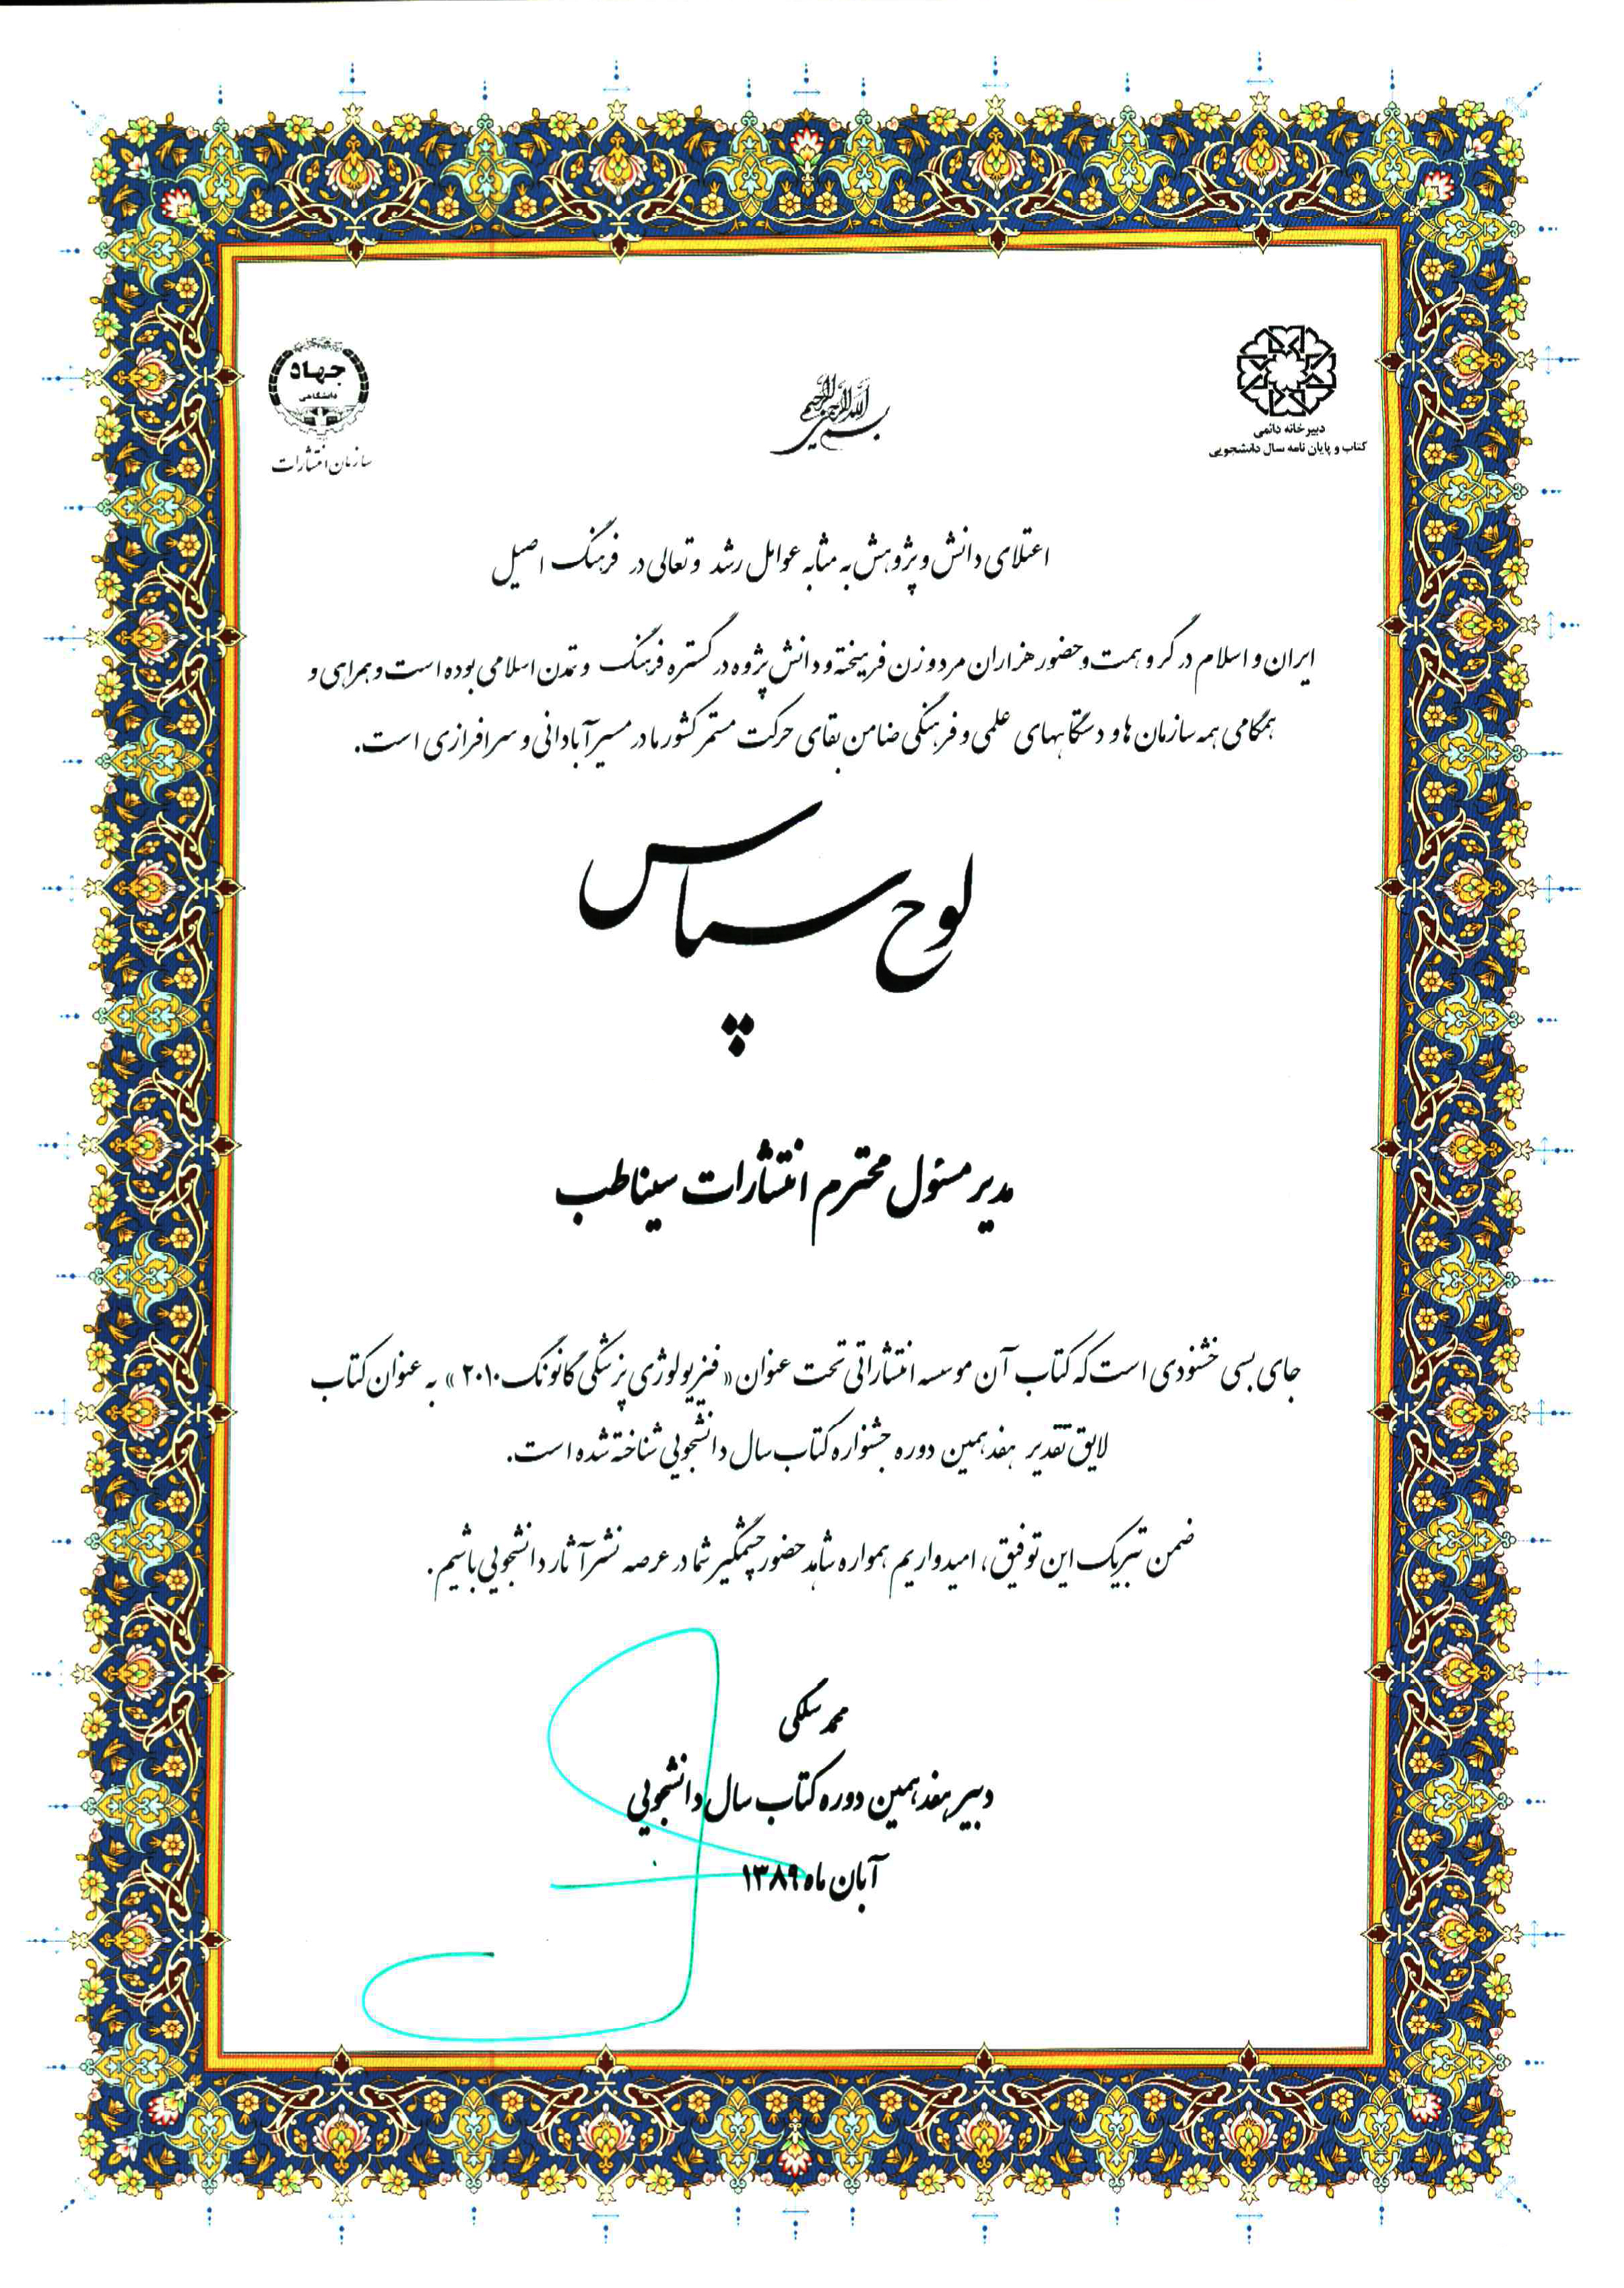 بسم الله الرحمن الرحیم
دبیرخانه دائمی
کتاب و پایان نامه سال دانشجویی
جهاد
دانشگاهی
سازمان انتشارات
اعتلای دانش و پژوهش به مثابه عوامل رشد و تعالی در فرهنگ اصیل
ایران و اسلام در گرو همت و حضور هزاران مرد و زن فرهیخته و دانش پژوه در گستره فرهنگ و تمدن اسلامی بوده است و همراهی و
همگامی همه سازمان ها و دستگاههای علمی و فرهنگی ضامن بقای حرکت مستمر کشور ما در مسیر آبادانی و سرافرازی است.
لوح سپاس
مدیر مسئول محترم انتشارات سیناطب
جای بسی خشنودی است که کتاب آن موسسه انتشاراتی تحت عنوان «فیزیولوژی پزشکی گانونگ ۲۰۱۰» به عنوان کتاب
لایق تقدیر هفدهمین دوره جشنواره کتاب سال دانشجویی شناخته شده است.
ضمن تبریک این توفیق، امیدواریم همواره شاهد حضور چشمگیر شما در عرصه نشر آثار دانشجویی باشیم.
محمد سلگی
دبیر هفدهمین دوره کتاب سال دانشجویی
آبان ماه ۱۳۸۹